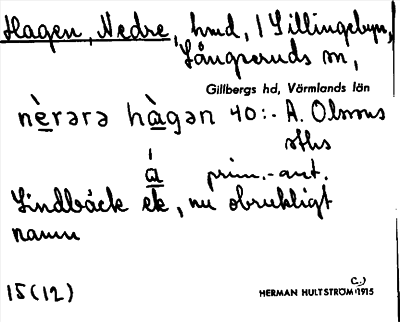 Hagen, Nedre, hmd, i Lillingebyn,
Långseruds sn,
Gillbergs hd, Värmlands län
nè̱rərə hà̱gən 40:- A. Olssons
sths
á̱ prim.-ant.
Lindbäck ek, nu obrukligt
namn
15(12)
HERMAN HULTSTRÖM 1915